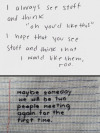 I always see stuff
and think
"oh you'd like this!"
I hope that you see
stuff and think that
I would like them,
too.
maybe someday
we will be two
people meeting
again for the
first time.